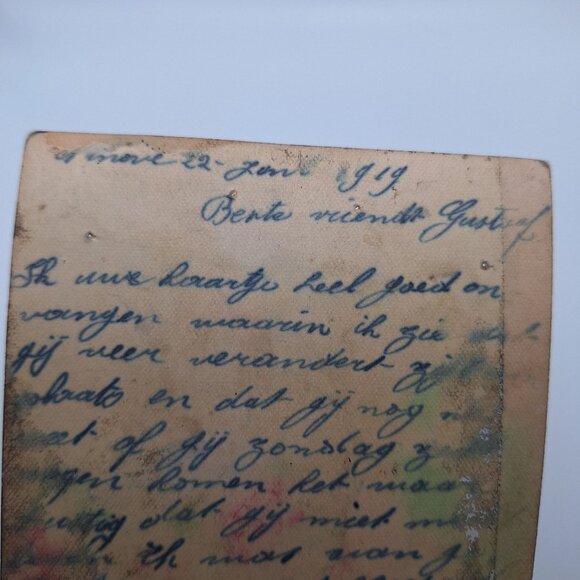 Ninove 22 - Juni 1919
Beste vriendt Gustaf
Ik uwe kaartje heel goed on
vangen waarin ik zie dat
gij veer verandert zijt
plaats en dat gij nog n
of gij zondag
komen het waa
dat gij niet
ik was van g